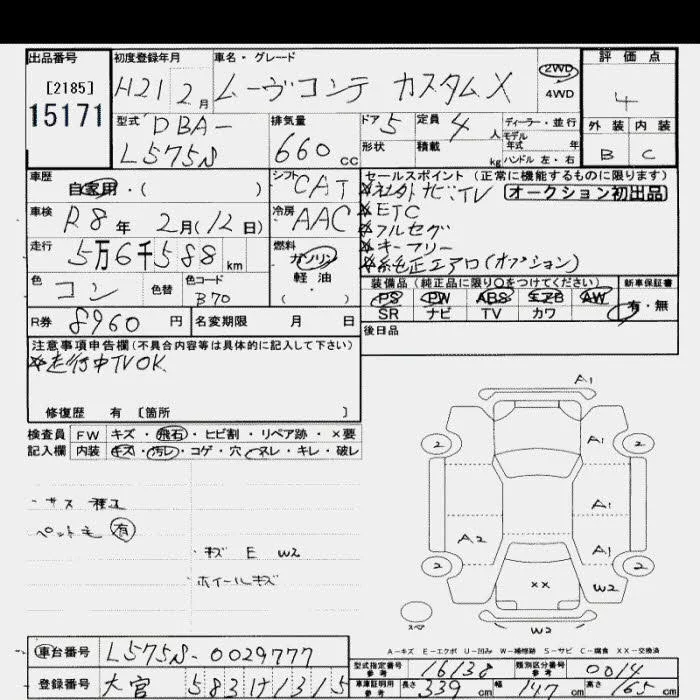 出品番号
[2185]
15171
初度登録年月
H21 2月
車名・グレード
ムーヴコンテ カスタムX
2WD
4WD
評価点
4
外装 内装
B C
型式 DBA-
L575S
排気量
660 cc
ドア 5
形状
定員 4 人
積載 kg
ディーラー・並行
モデル
年式 年
ハンドル 左・右
車歴
自家用・( )
車検 R8年 2月(12日)
走行 5万6千588km
色 コン 色替 色コード
B70
R券 8960円 名変期限 月 日
シフト CAT
冷房 AAC
燃料
ガソリン
軽・油
( )
セールスポイント(正常に機能するものに限ります)
※社外ナビ、TV オークション初出品
※ETC
※フルセグ
※キーフリー
※純正エアロ(オプション)
装備品(純正品に限り○をつけてください) 新車保証書
PS PW ABS エアB AW
SR ナビ TV カワ
有・無
後日品
注意事項申告欄(不具合内容等は具体的に記入して下さい)
※走行中TVOK
修復歴 有 [箇所 ]
検査員 FW キズ・飛石・ヒビ割・リペア跡・×要
記入欄 内装 キズ・汚レ・コゲ・穴・ヌレ・キレ・破レ
ペット毛 有
・キズ E W2
・ホイールキズ
A1
2 A1 2
A1
A2 A1
2 XX 2
W2
スペア
W2
A-キズ E-エクボ U-凹み W-補修跡 S-サビ C-腐食 XX-交換済
車台番号 L575S-0029777
登録番号 大宮 583 け 1315
型式指定番号 参考 16138 類別区分番号 参考 0014
車庫証明用 参考 長さ 339cm 幅 147cm 高さ 165cm